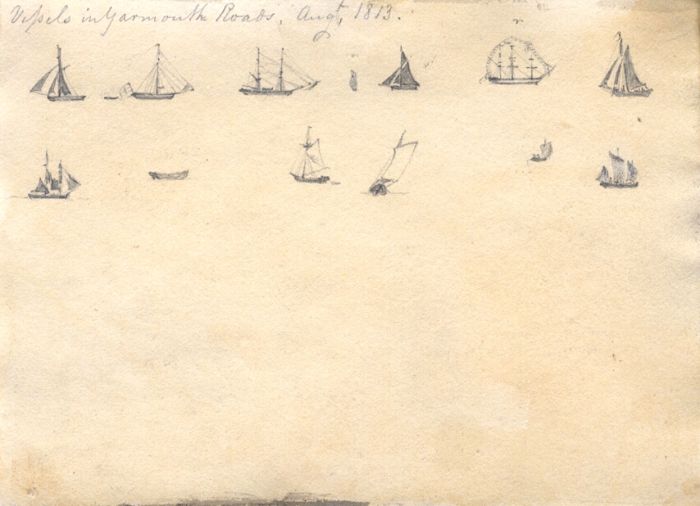 Vessels in Yarmouth Roads, Augt, 1813.